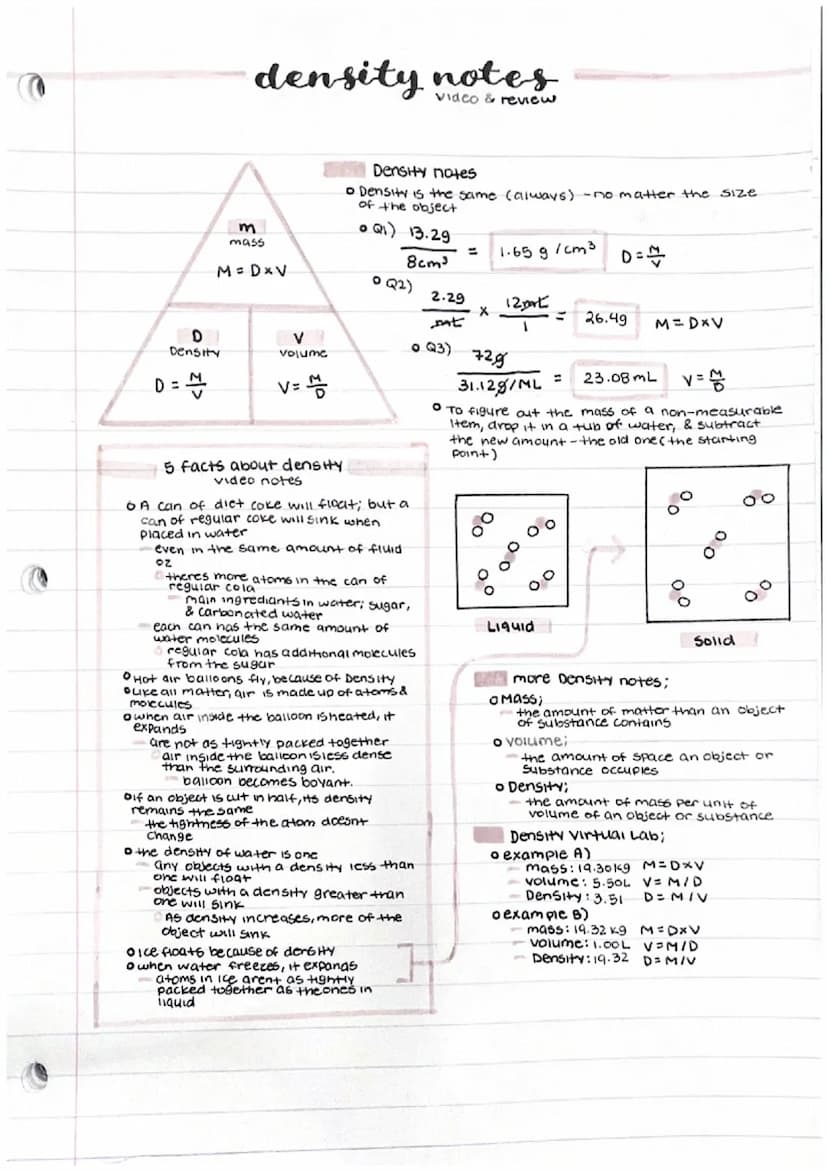 density notes
video & review
m
mass
M = D x V
D
Density
D = M/V
V
volume
V = M/D
Density notes
Density is the same (always) - no matter the size
of the object
Q1) 13.2g / 8cm³ = 1.65 g/cm³ D = M/V
Q2) 2.2g/mL x 12mL/1 = 26.4g M = D x V
Q3) 72g / 31.12g/ML = 23.08mL V = M/D
To figure out the mass of a non-measurable
item, drop it in a tub of water, & subtract
the new amount - the old one (the starting
point)
5 facts about density
video notes
A can of diet coke will float; but a
can of regular coke will sink when
placed in water
even in the same amount of fluid
oz
theres more atoms in the can of
regular cola
main ingrediants in water; sugar,
& carbonated water
each can has the same amount of
water molecules
regular cola has additional molecules
from the sugar
Hot air balloons fly, because of Density
Like all matter, air is made up of atoms &
molecules
when air inside the balloon is heated, it
expands
are not as tightly packed together
air inside the balloon is less dense
than the surrounding air.
balloon becomes boyant.
if an object is cut in half, its density
remains the same
the tightness of the atom doesnt
change
the density of water is one
any objects with a density less than
one will float
objects with a density greater than
one will sink
As density increases, more of the
object will sink
ice floats because of density
when water freezes, it expands
atoms in ice arent as tightly
packed together as the ones in
liquid
Liquid
Solid
more Density notes;
Mass;
the amount of matter than an object
of substance contains
volume;
the amount of space an object or
substance occupies
Density;
the amount of mass per unit of
volume of an object or substance
Density Virtual Lab;
example A)
mass: 19.30kg M=DxV
volume: 5.50L V=M/D
Density: 3.51 D=M/V
example B)
mass: 19.32 kg M=DxV
volume: 1.00L V=M/D
Density: 19.32 D=M/V